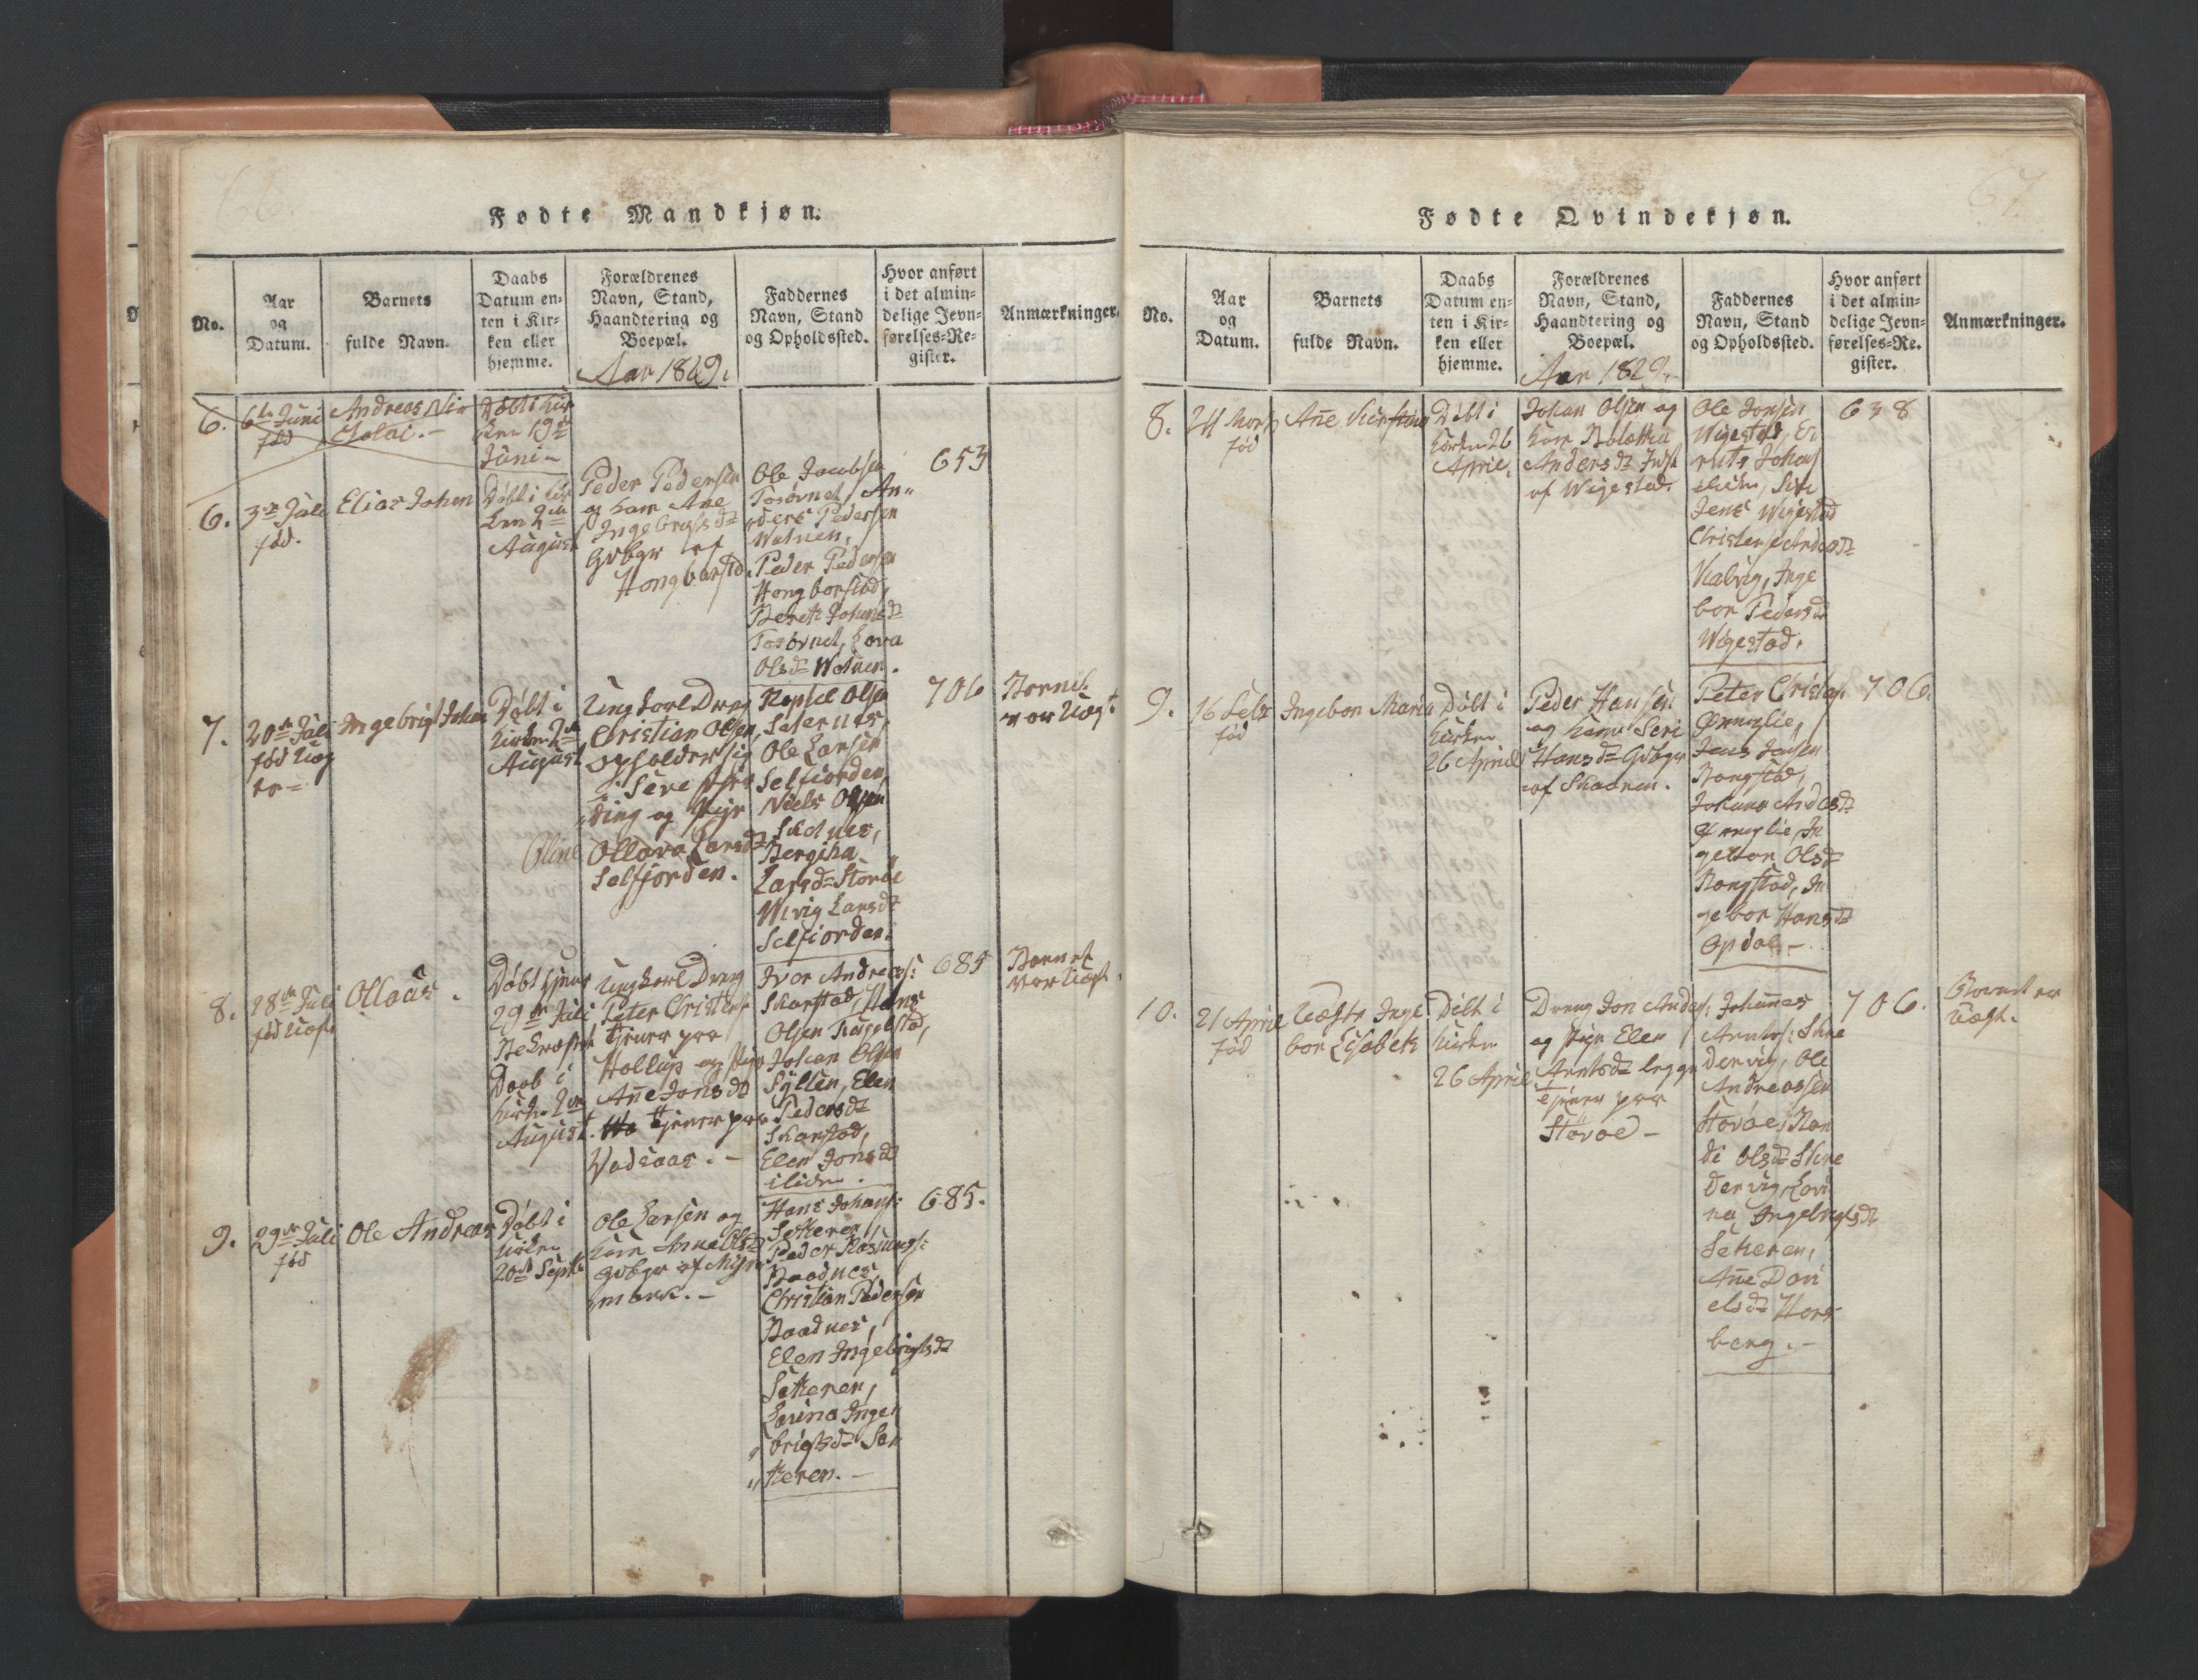 66.
Fødte Mandkjøn.
No.
Aar
og
Datum.
Barnets
fulde Navn.
Daabs
Datum en-
ten i Kir-
ken eller
hjemme.
Forældrenes
Navn, Stand,
Haandtering og
Boepæl.
Aar 1829.
Faddernes
Navn, Stand
og Opholdssted.
Hvor anført
i det almin-
delige Jevn-
førelses-Re-
gister.
Anmærkninger.
6.
6te Juni
fød
Andreas Ni
Døbt i Kir
ken 19de
Juni
6.
3de Juli
fød.
Elias Johan
Døbt i Kir
ken 2den
August
Peder Pedersen
og Kone Ane
Ingebrigtsdt
Gdbgr af
Hongbarstd.
Ole Jacobsen
An-
ders Pedersen
Watnen,
Peder Pedersen
Hongbarstad,
Bereth Johansdt
Lova
Olsdt Watnen.
653
7.
20de Juli
fød Uæg
te
Ingebrigt Johan
Døbt i
Kirken 2den
August
Ungkarl Dreng
Christian Olsen,
opholder sig
i
og Pige
Oline
Ollava Larsdt
Selfjorden.
Olsen
Seternes,
Ole Larsen
Selfiorden,
Niels Olsen
Bergitha
Larsdt Storøe
Larsdt
Selfiorden.
706
Barnet
var Uægt.
8.
28de Juli
fød Uægt
Ollaus.
Døbt hjeme
29de Juli
Bekræftet
Daab i
Kirken 2den
August.
Ungkarl Dreng
Peter Christens
tjener paa
Hollup og Pige
Ane Jonsdt
tjener paa
Vadsaas.
Ivar Andreas:
Skarstad, Hans
Olsen
Johan Olsen
Sylten, Elen
Pedersdt
Skarstad,
Elen Jonsdt
Eliden.
685
Barnet
var Uægt.
9.
29de Juli
fød
Ole Andreas
Døbt i
Kirken
20de Septbr
Ole Larsen og
Kone Anne Olsdt
Gdbgr af Myre
mark.
Hans Johans:
Setteren,
Peder Rasmus:
Baadnes,
Christian Pedersen
Baadnes,
Elen Ingebrigtsdt
Setteren,
Lovina Inge
brigtsdt Se
tteren.
685.
67.
Fødte Qvindekjøn.
No.
Aar
og
Datum.
Barnets
fulde Navn.
Daabs
Datum en-
ten i Kir-
ken eller
hjemme.
Forældrenes
Navn, Stand,
Haandtering og
Boepæl.
Aar 1829.
Faddernes
Navn, Stand
og Opholdssted.
Hvor anført
i det almin-
delige Jevn-
førelses-Re-
gister.
Anmærkninger.
8.
24 Marts
fød
Ane Kirstina
Døbt i
Kirken 26
April.
Johan Olsen og
Kone Bolettha
Andersdt Indst
af Wigestad.
Ole Jonsen
Wigestad,
Johans
Eliden, Siri
Jens Wigestad
Christense Andersdt
Viabvig, Inge
bor Pedersdt
Wigestad.
638
9.
16 Febr
fød
Ingebor Maria
Døbt i
Kirken
26 April
Peder Hansen
og Kone Seri
Hansdt Gdbgr
af Skaaren.
Peter Christof:
Jens Jonsen
Bongstad,
Johana Andersdt
In
gebor Olsdt
Bongstad, In
gebor Hansdt
Opdal
706.
10.
21 April
fød
Uægte Inge
bor Lisabeth
Døbt i
Kirken
26 April
Dreng Jon Anders:
og Pige Elen
Arntsdt begge
tjener paa
Storøe
Johannes
Arnts: Skre
dervig, Ole
Andreassen
Storøe, Ran
di Olsdt Skre
dervig, Lovi
na Ingebrigtsdt
Setteren,
Ane Dani
elsdt Hors
berg.
706.
Barnet er
Uægt.